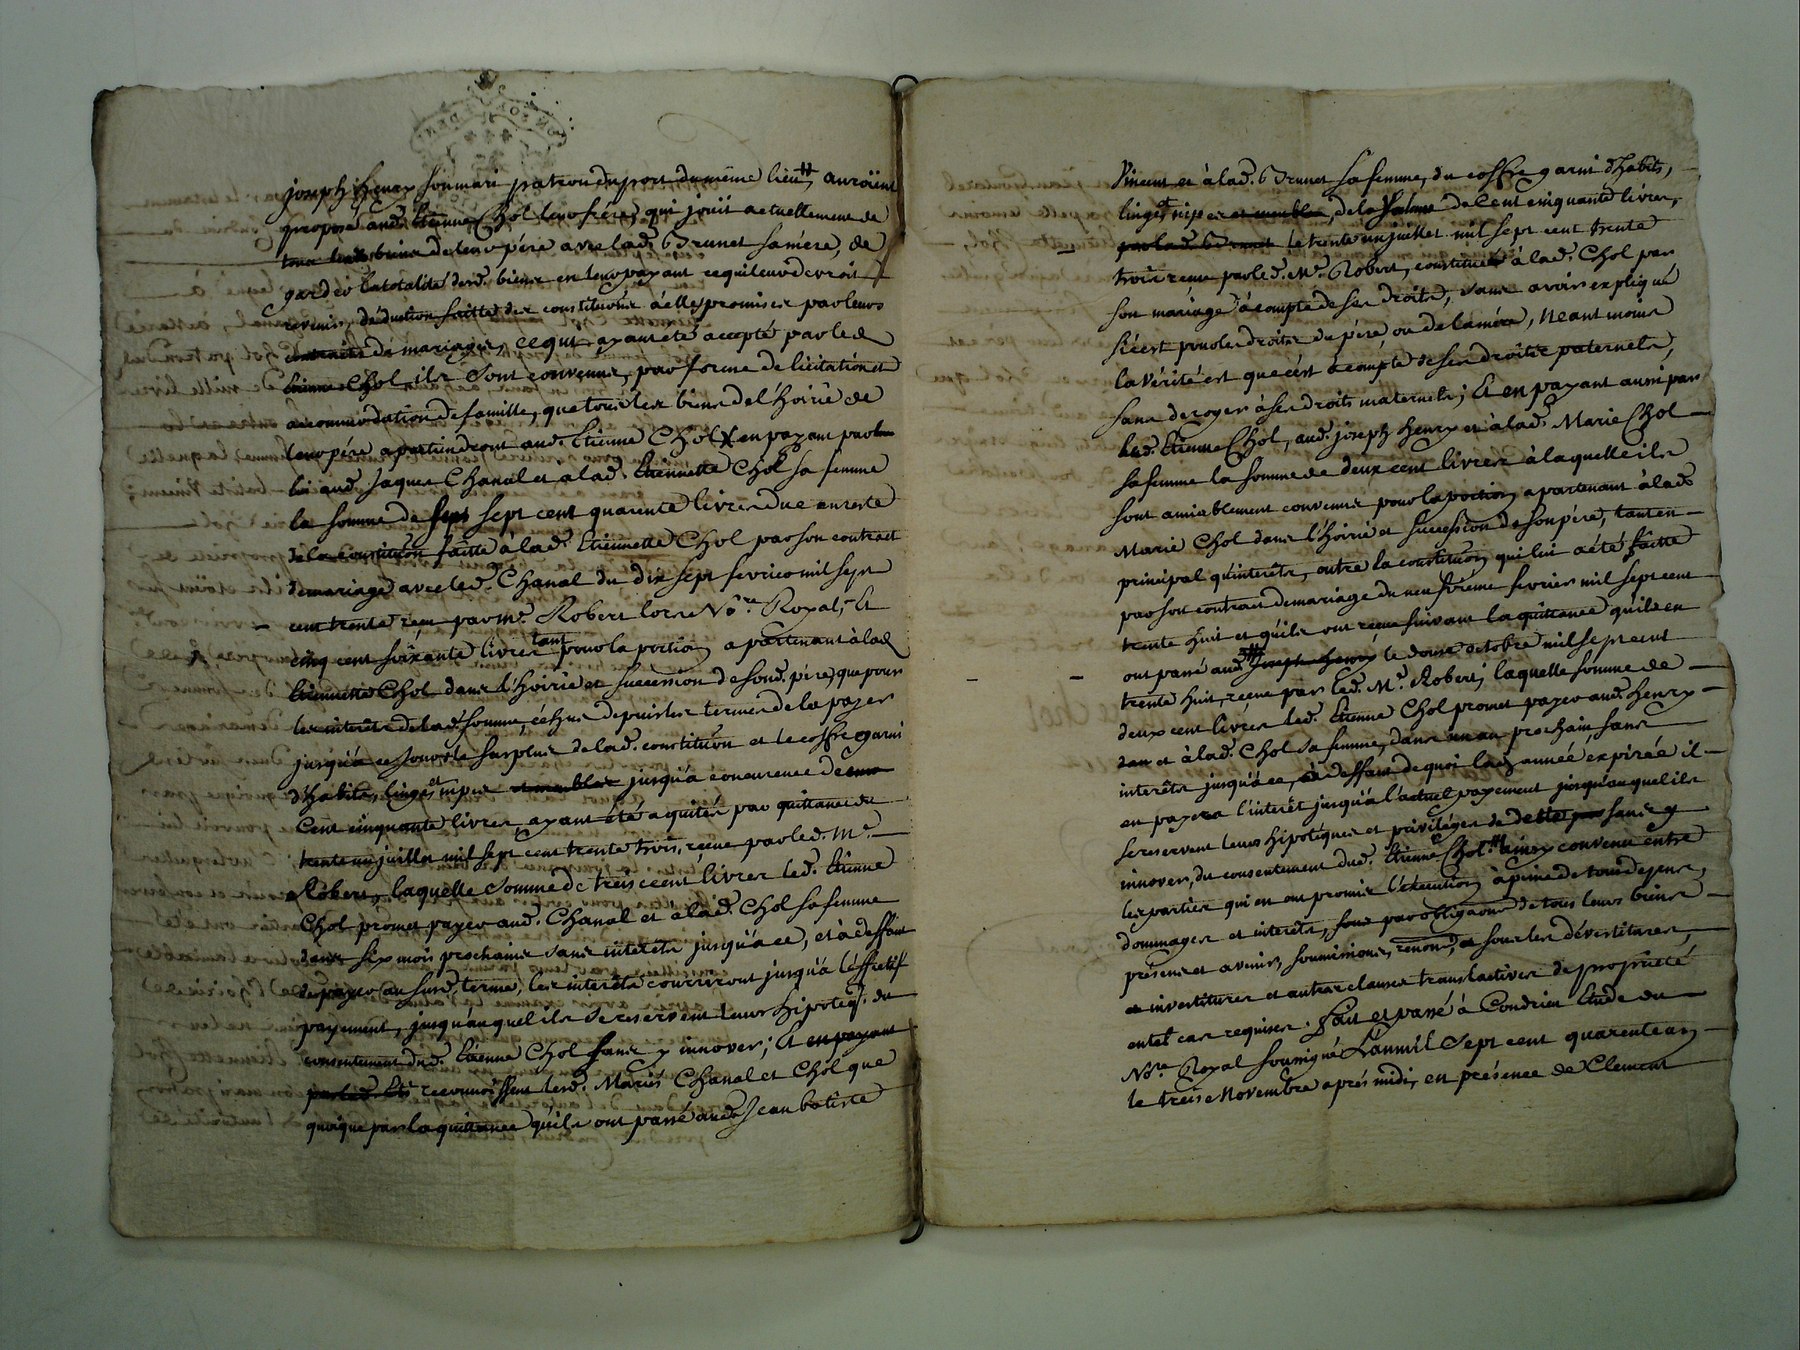 joseph henry son mari patron du port du même lieu auroient
proposé aud. Etienne Chol leur frère, qui jouit actuellement de
tous les biens de leur père avec lad. Brunet sa mère, de
garder la totalité desd. biens en leur payant ce qui leur devroit
revenir, déduction faitte des constitutions à elles promises par leurs
contrats de mariages, ce qui ayant été accepté par led
Etienne Chol, ils sont convenus, par forme de licitation et
accommodation de famille, que tous les biens de l'hoirie de
leur père apartiendront aud. Etienne Chol en payant par
lui aud. jaques Chanal et a lad. Etiennette Chol sa femme
la somme de sept cent quarente livres due en reste
de la constitution faitte à lad. Etiennette Chol par son contract
de mariage avec led. Chanal du dix sept fevrier mil sept
cent trente reçu par me. Robert lors No.re Royal; Et
cinq cent soixante livres tant pour la portion apartenant à lad
Etiennette Chol dans l'hoirie et succession de sond. père, que pour
les interets de lad. somme, échus depuis les termes de la payer
jusqu'à ce jour, le surplus de lad. constitution et le coffre garni
d'habits, linges et nipes et meubles jusqu'à concurence de
Cent cinquante livres ayant été aquités par quittance du
trente un juillet mil sept cent trente trois, reçue par led. Me.
Robert, laquelle somme de treise cent livres led. Etienne
Chol promet payer aud. Chanal et à lad. Chol sa femme
dans six mois prochains sans interets jusqu'à ce, et à deffaut
de payer au susd. terme, les interets courriront jusqu'à l'effectif
payement, jusqu'auquel ils se reservent leurs hipoteq. du
consentement dud. Etienne Chol sans y innover; Et en payant
par led. Et. reconnoissent lesd. Mariés Chanal et Chol que
quoique par la quittance qu'ils ont passé aud. Jean batiste
Vincent et à lad. Brunet sa femme, du coffre garni d'habits,
linges et nipes et meubles, de la Valeur de Cent cinquante livres,
par lad. Brunet le trente un juillet mil sept cent trente
trois reçue par led. Me. Robert, constitué à lad. Chol par
son mariage à compte de ses droits, sans avoir expliqué
si c'est pour les droits de père, ou de la mère, Neantmoins
la vérité est que c'est à compte de ses droits paternels,
sans deroger à ses droits maternels; Et en payant aussi par
led. Etienne Chol, aud. joseph henry et à lad. Marie Chol
sa femme la somme de deux cent livres à laquelle ils
sont amiablement convenus pour la portion apartenant à lad.
Marie Chol dans l'hoirie et succession de son père, tant en
principal qu'interets, outre la constitution qui lui a été faitte
par son contract de mariage du neuvième fevrier mil sept cent
trente huit et qu'ils ont reçue suivant la quittance qu'ils en
ont passé aud. joseph henry le douse octobre mil sept cent
trente huit, reçue par led. Me. Robert; laquelle somme de
deux cent livres led. Etienne Chol promet payer aud. henry
et à lad. Chol sa femme, dans un an prochain sans
interets jusqu'à ce, et à deffaut de quoi lad. année expirée il
en payera l'interet jusqu'à l'actuel payement jusqu'auquel ils
se reservent leurs hipoteques et privileges de dette sans y
innover, du consentement dud. Etienne Chol, ainsy convenu entre
les parties qui en ont promis l'exécution à peine de tous depens,
dommages et interets, par obligations de tous leurs biens
présens et avenir, soumissions, renonc., et sous les dévestitures,
investitures et autres clauses translatives de propriété
en tel cas requises. fait et passé à Condrieu Etude du
No.re Royal soussigné L'an mil sept cent quarente un
le treise Novembre après midi, en présence de Clement